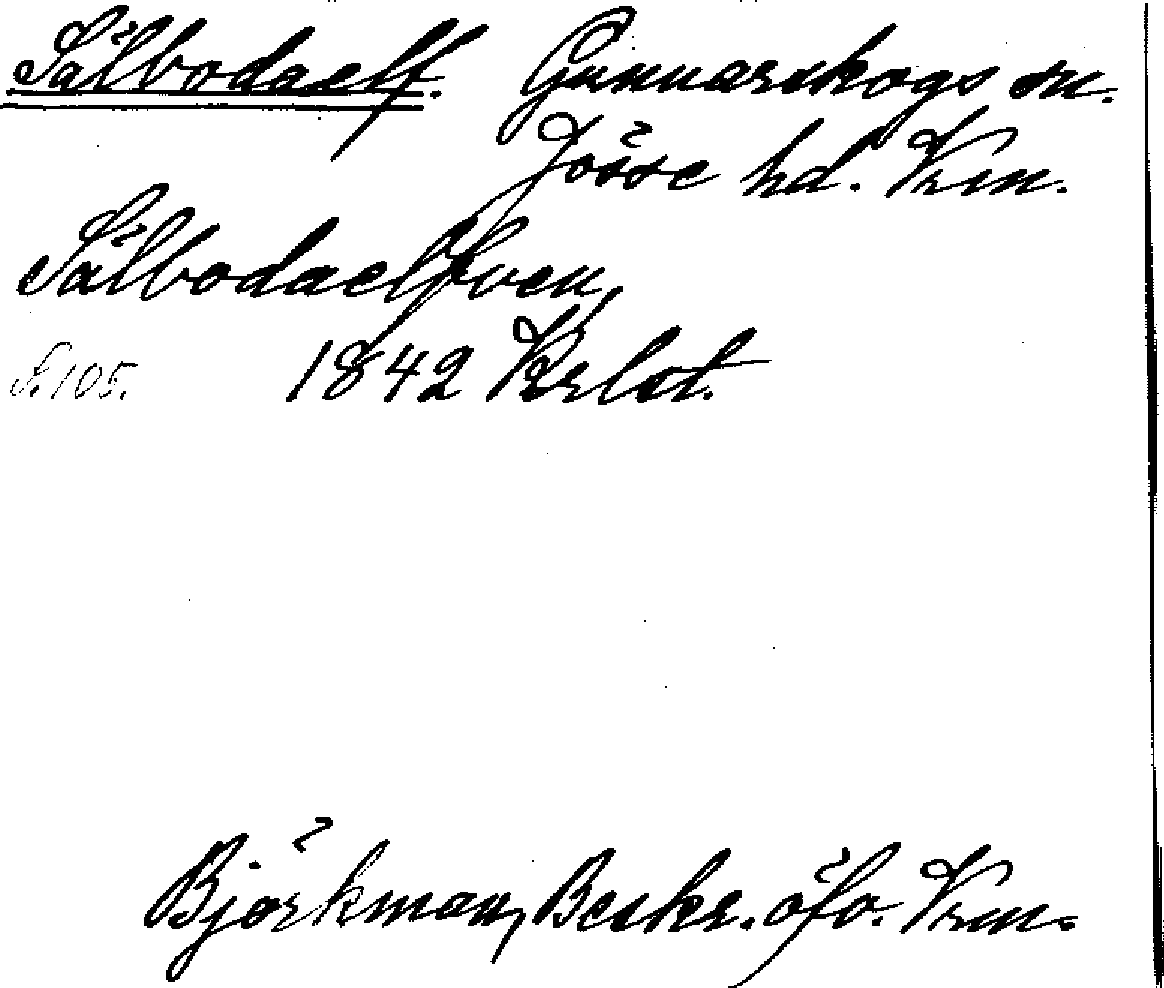 Sälbodaelf. Gunnarskogs sn.
Jösse hd. Vrm.
Sälbodaelfven,
S. 105. 1842 Krlst.
Björkman, Beskr. öfv. Vrm.